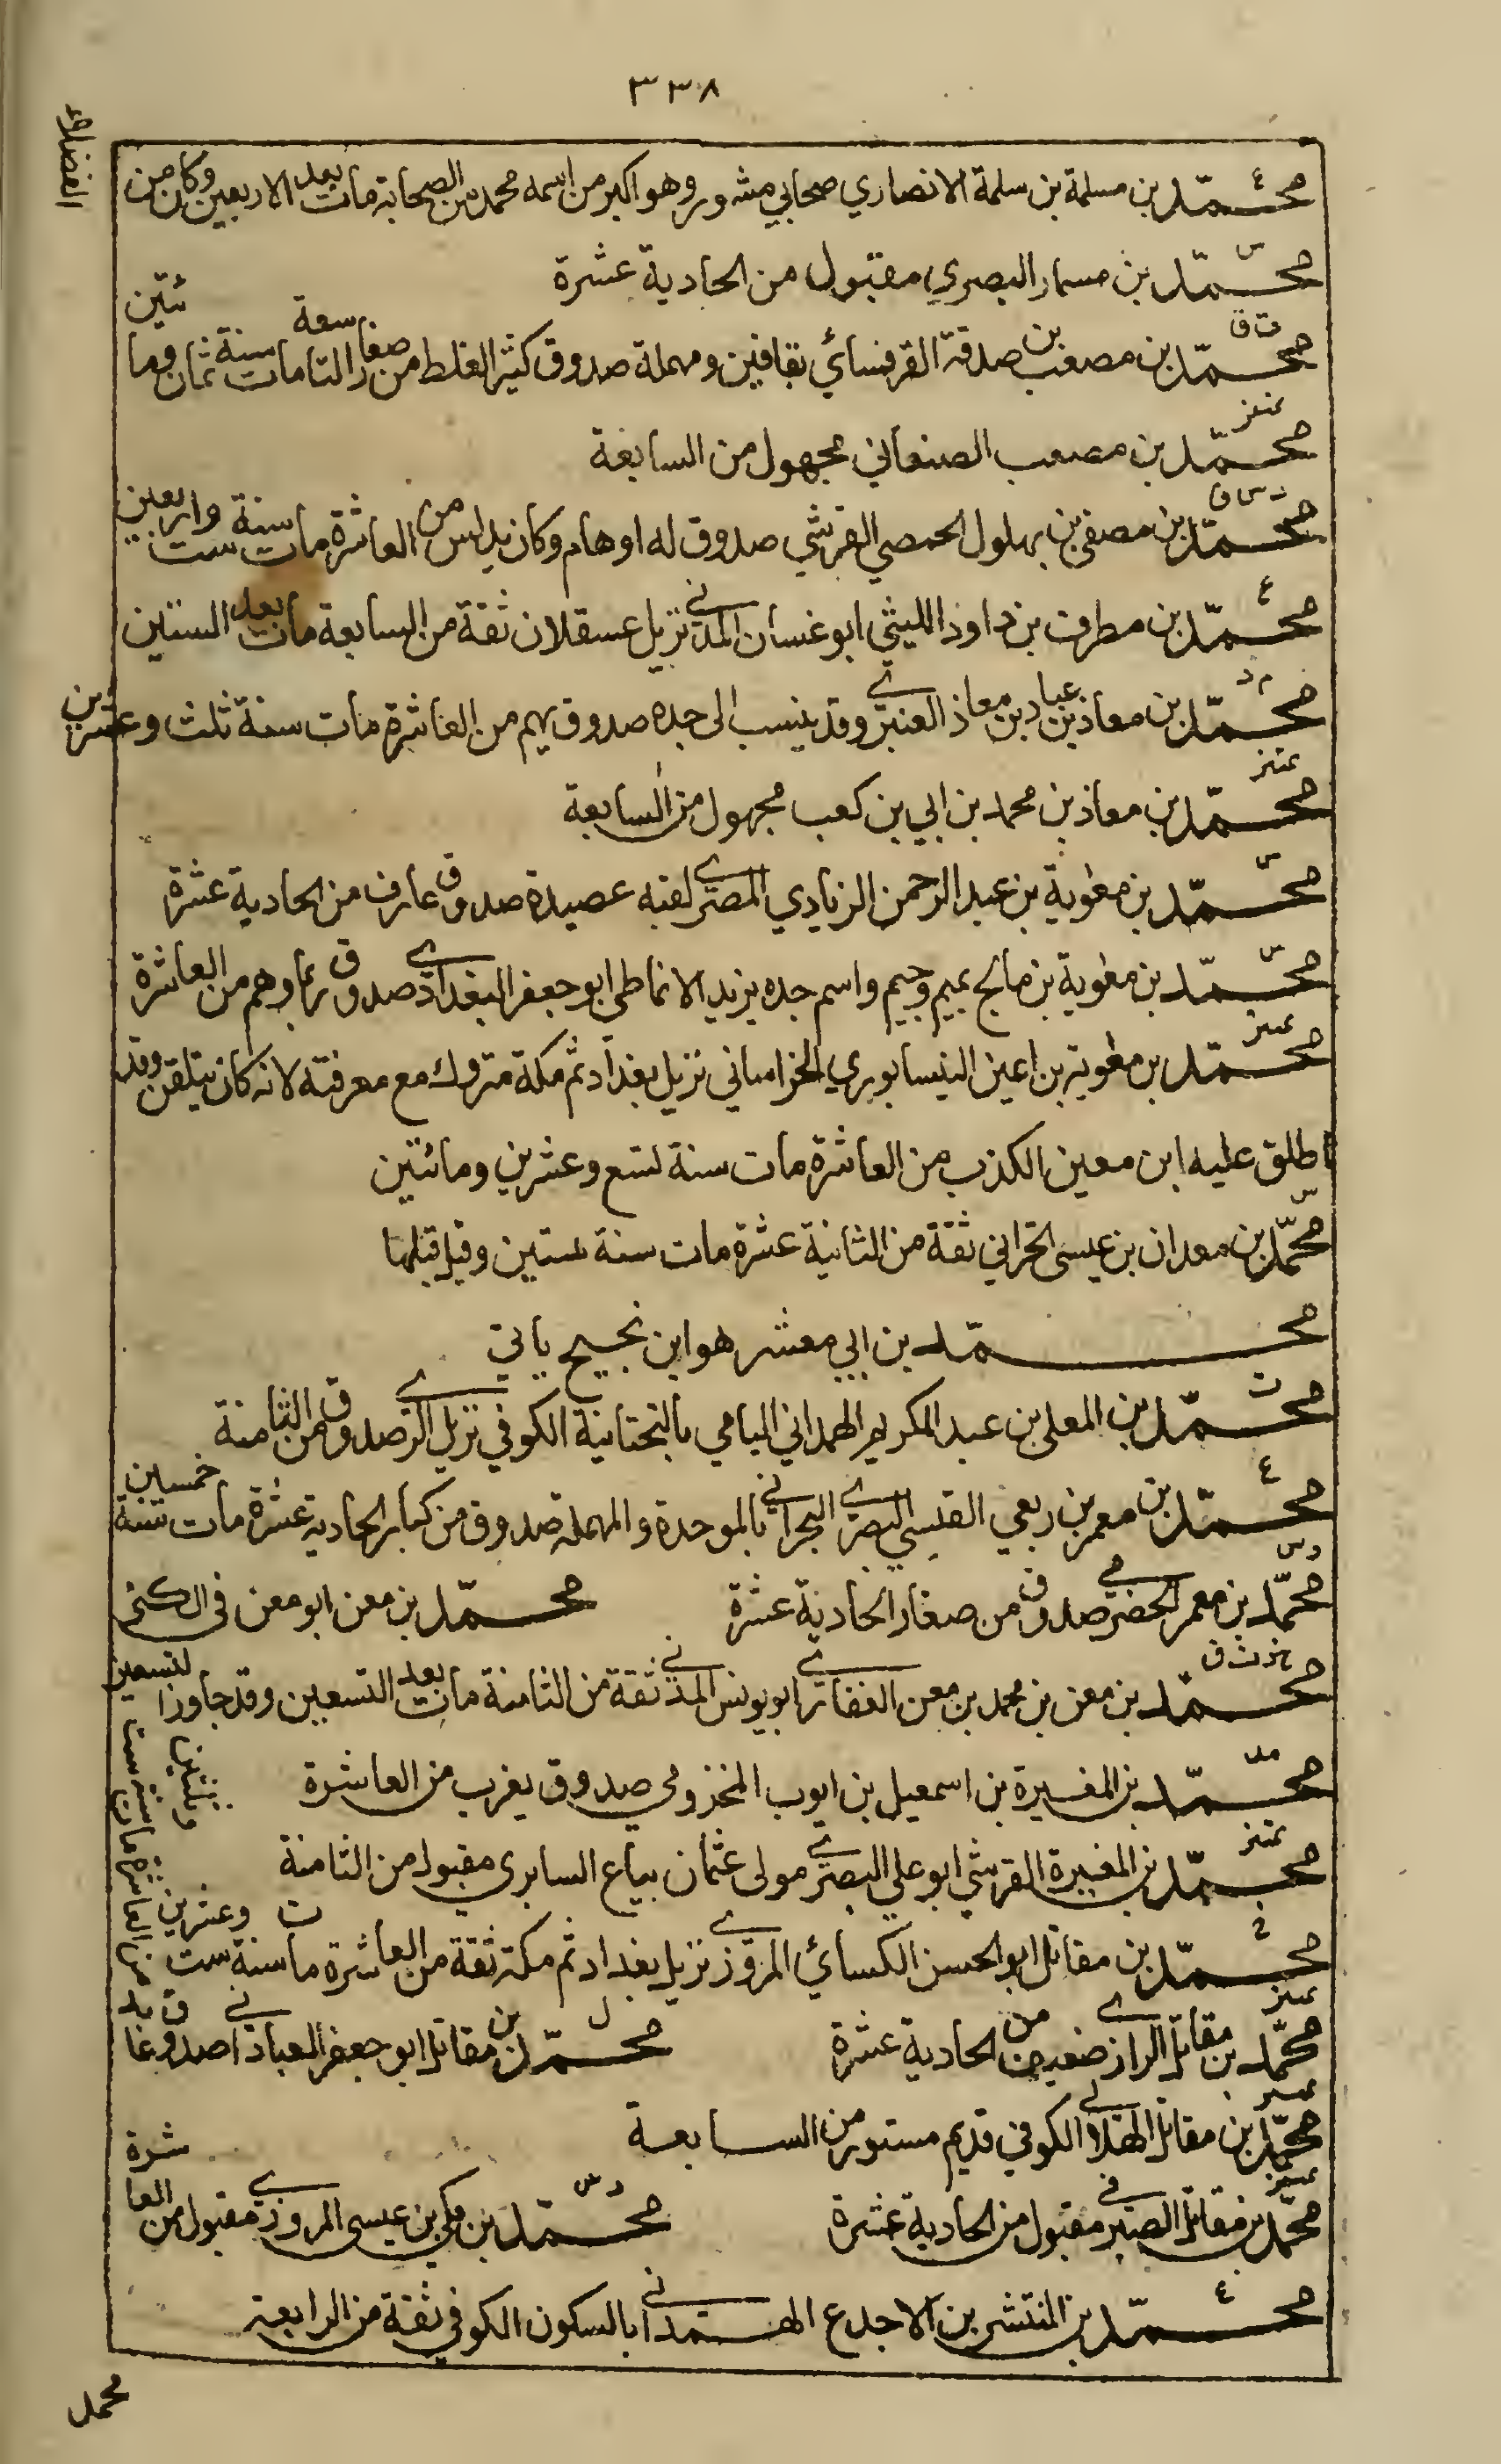 ٣٣٨
ع محمد بن مسلمة بن سلمة الانصاري صحابي مشهور وهو اكبر من اسمه محمد من الصحابة مات بعد الاربعين وكان من
الفضلاء
س محمد بن مسمار البصري مقبول من الحادية عشرة
ت ق محمد بن مصعب بن صدقة القرقسائي بقافين ومهملة صدوق كثير الغلط من صغار التاسعة مات سنة ثمان وما
ئتين
تمييز محمد بن مصعب الصنعاني مجهول من السابعة
د س ق محمد بن مصفى بن بهلول الحمصي القرشي صدوق له اوهام وكان يدلس من العاشرة مات سنة ست واربعين
ع محمد بن مطرف بن داود الليثي ابو غسان المدني نزيل عسقلان ثقة من السابعة مات بعد الستين
م د محمد بن معاذ بن عباد بن معاذ العنبري وقد ينسب الى جده صدوق يهم من العاشرة مات سنة ثلث وعشرين
تمييز محمد بن معاذ بن محمد بن ابي بن كعب مجهول من السابعة
س محمد بن معوية بن عبد الرحمن الزيادي المصري لقبه عصيدة صدوق عارف من الحادية عشرة
س محمد بن معوية بن مالج بميم وجيم واسم جده يزيد الانماطي ابو جعفر البغدادي صدوق ربما وهم من العاشرة
تمييز محمد بن معوية بن اعين النيسابوري الخراساني نزيل بغداد ثم مكة متروك مع معرفته لانه كان يتلقن وقد
اطلق عليه ابن معين الكذب من العاشرة مات سنة تسع وعشرين ومائتين
س محمد بن معدان بن عيسى الحراني ثقة من الثانية عشرة مات سنة ستين وقيل قبلها
محمد بن ابي معشر هو ابن نجيح ياتي
ت محمد بن المعلى بن عبد الكريم الهمداني اليامي بالتحتانية الكوفي نزيل الري صدوق من الثامنة
ع محمد بن معمر بن ربعي القيسي البصري البحراني بالموحدة والمهملة صدوق من كبار الحادية عشرة مات سنة خمسين
د س محمد بن معمر الحضرمي صدوق من صغار الحادية عشرة محمد بن معن ابو معن في الكنى
خ د ت ق محمد بن معن بن محمد بن معن الغفاري ابو يونس المدني ثقة من الثامنة مات بعد التسعين وقد جاوز التسعين
مد محمد بن المغيرة بن اسمعيل بن ايوب المخزومي صدوق يغرب من العاشرة
تمييز محمد بن المغيرة القرشي ابو علي البصري مولى عثمان بياع السابري مقبول من الثامنة
خ محمد بن مقاتل ابو الحسن الكسائي المروزي نزيل بغداد ثم مكة ثقة من العاشرة مات سنة ست وعشرين
تمييز محمد بن مقاتل الرازي ضعيف من الحادية عشرة ل محمد بن مقاتل ابو جعفر العباداني صدوق عابد
من العاشرة مات سنة ست
وثلثين
تمييز محمد بن مقاتل الهلالي الكوفي قديم مستور من السابعة
تمييز محمد بن مقاتل الصيرفي مقبول من الحادية عشرة د س محمد بن مكي بن عيسى المروزي مقبول من العا
شرة
ع محمد بن المنتشر بن الاجدع الهمداني بالسكون الكوفي ثقة من الرابعة
محمد